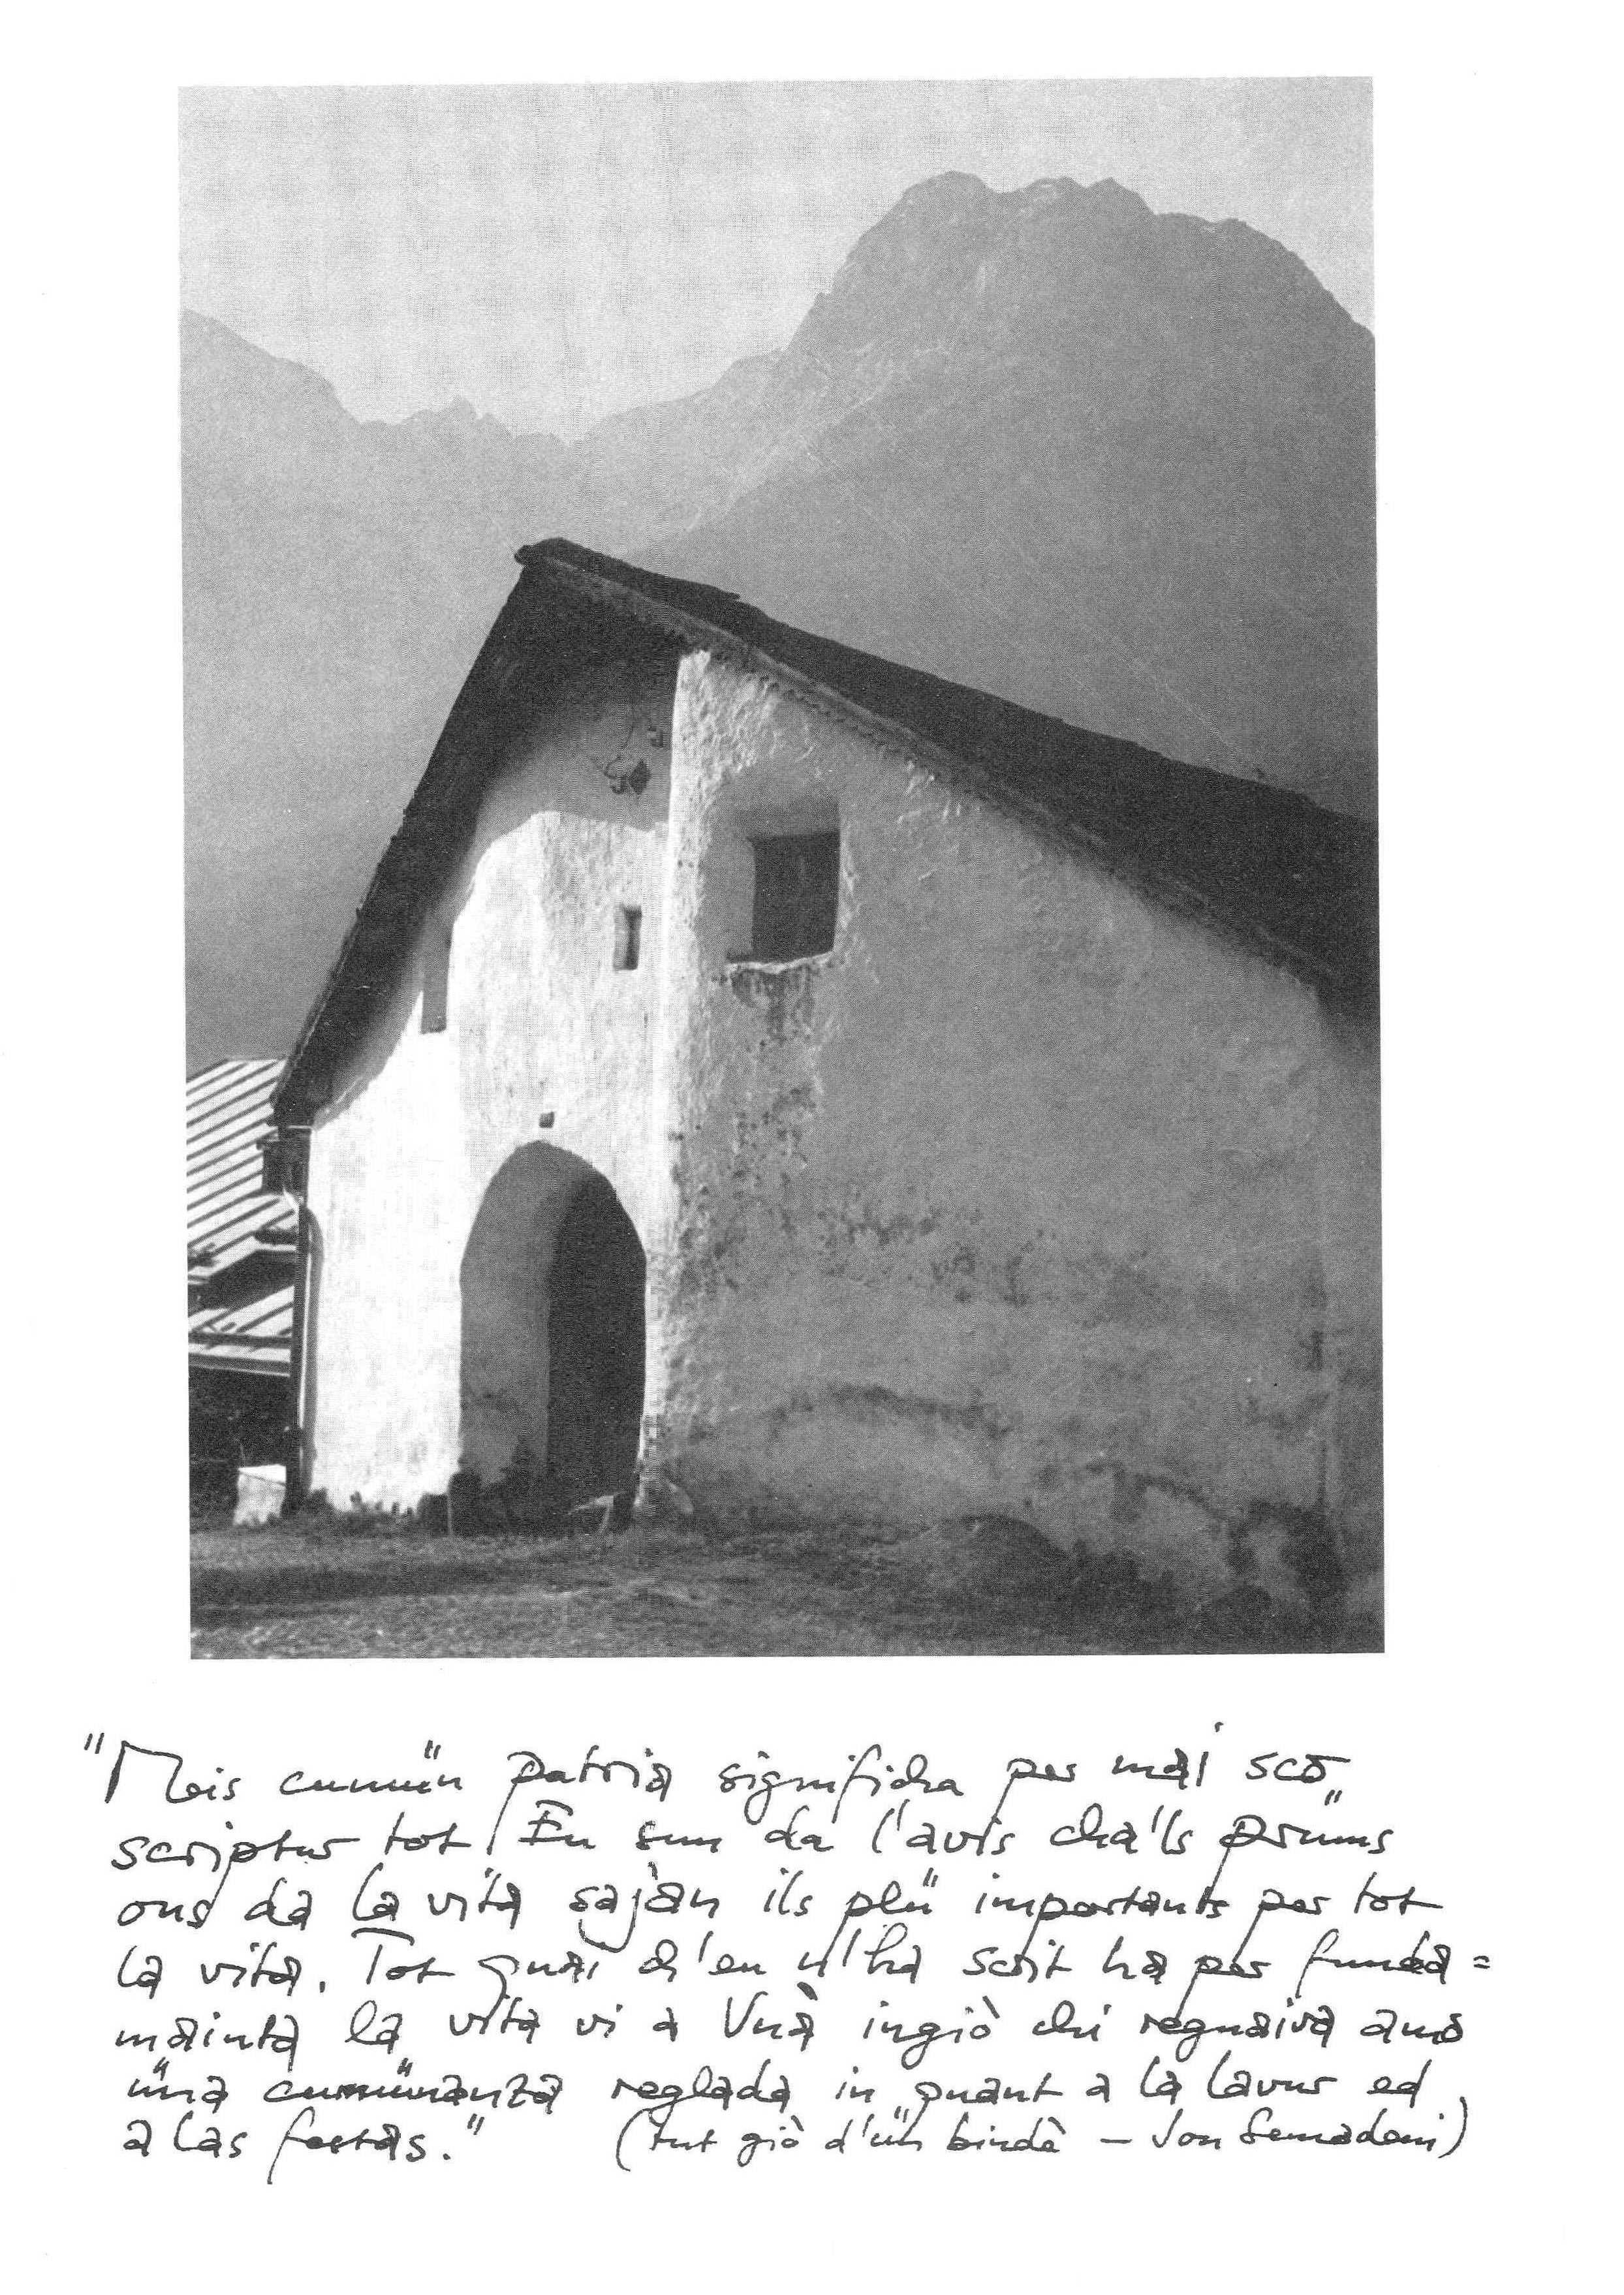 "Meis cumün patria significha per mai sco
scriptur tot. Eu sun da l'avis cha'ls prüms
ons da la vita sajan ils plü importants per tot
la vita. Tot quai ch'eu n'ha scrit ha per funda=
mainta la vita vi a Vnà ingiò chi regnaiva amò
üna cumünanza reglada in quant a la lavur ed
a las festas." (Tut giò d'ün bindè – Jon Semadeni)